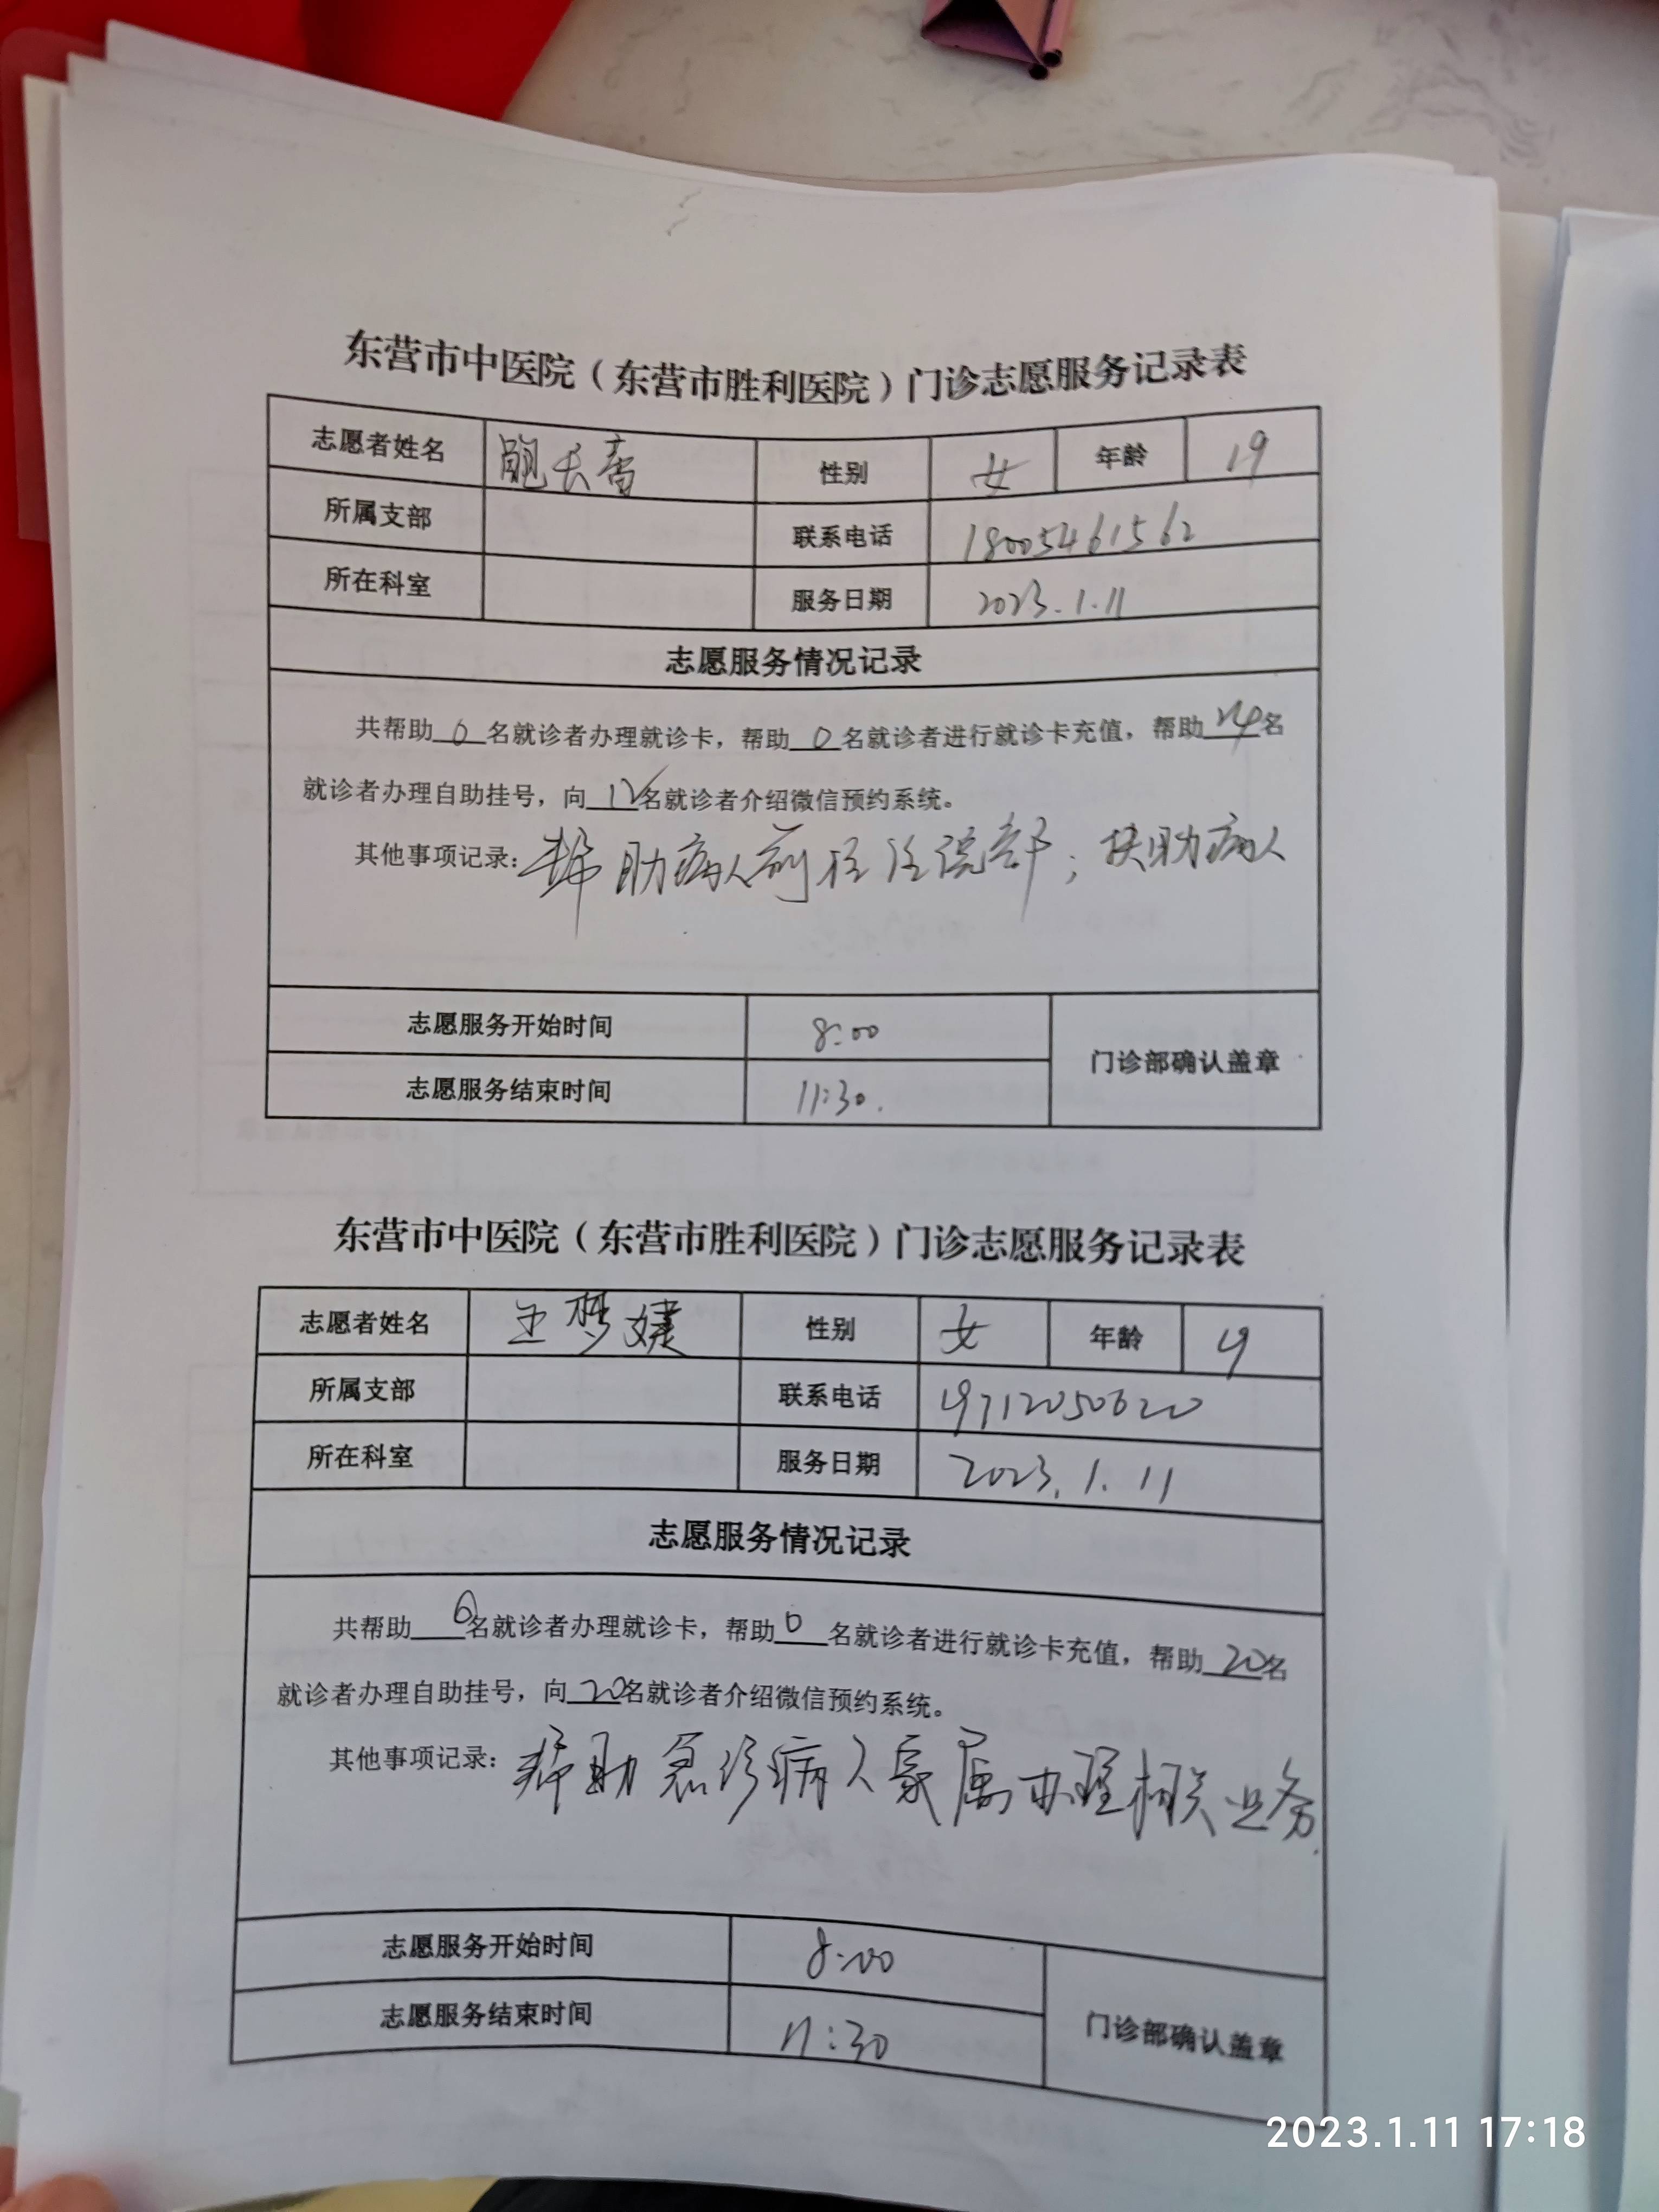 东营市中医院（东营市胜利医院）门诊志愿服务记录表
志愿者姓名 性别 女 年龄 19
所属支部 联系电话 18005461562
所在科室 服务日期 2023.1.11
志愿服务情况记录
共帮助0名就诊者办理就诊卡，帮助0名就诊者进行就诊卡充值，帮助24名
就诊者办理自助挂号，向12名就诊者介绍微信预约系统。
其他事项记录：帮助病人前往住院部；扶助病人
志愿服务开始时间 8:00
门诊部确认盖章
志愿服务结束时间 11:30.
东营市中医院（东营市胜利医院）门诊志愿服务记录表
志愿者姓名 王梦婕 性别 女 年龄 19
所属支部 联系电话 19712050620
所在科室 服务日期 2023.1.11
志愿服务情况记录
共帮助0名就诊者办理就诊卡，帮助0名就诊者进行就诊卡充值，帮助20名
就诊者办理自助挂号，向20名就诊者介绍微信预约系统。
其他事项记录：帮助急诊病人家属办理相关业务.
志愿服务开始时间 8:00
门诊部确认盖章
志愿服务结束时间 11:30
2023.1.11 17:18